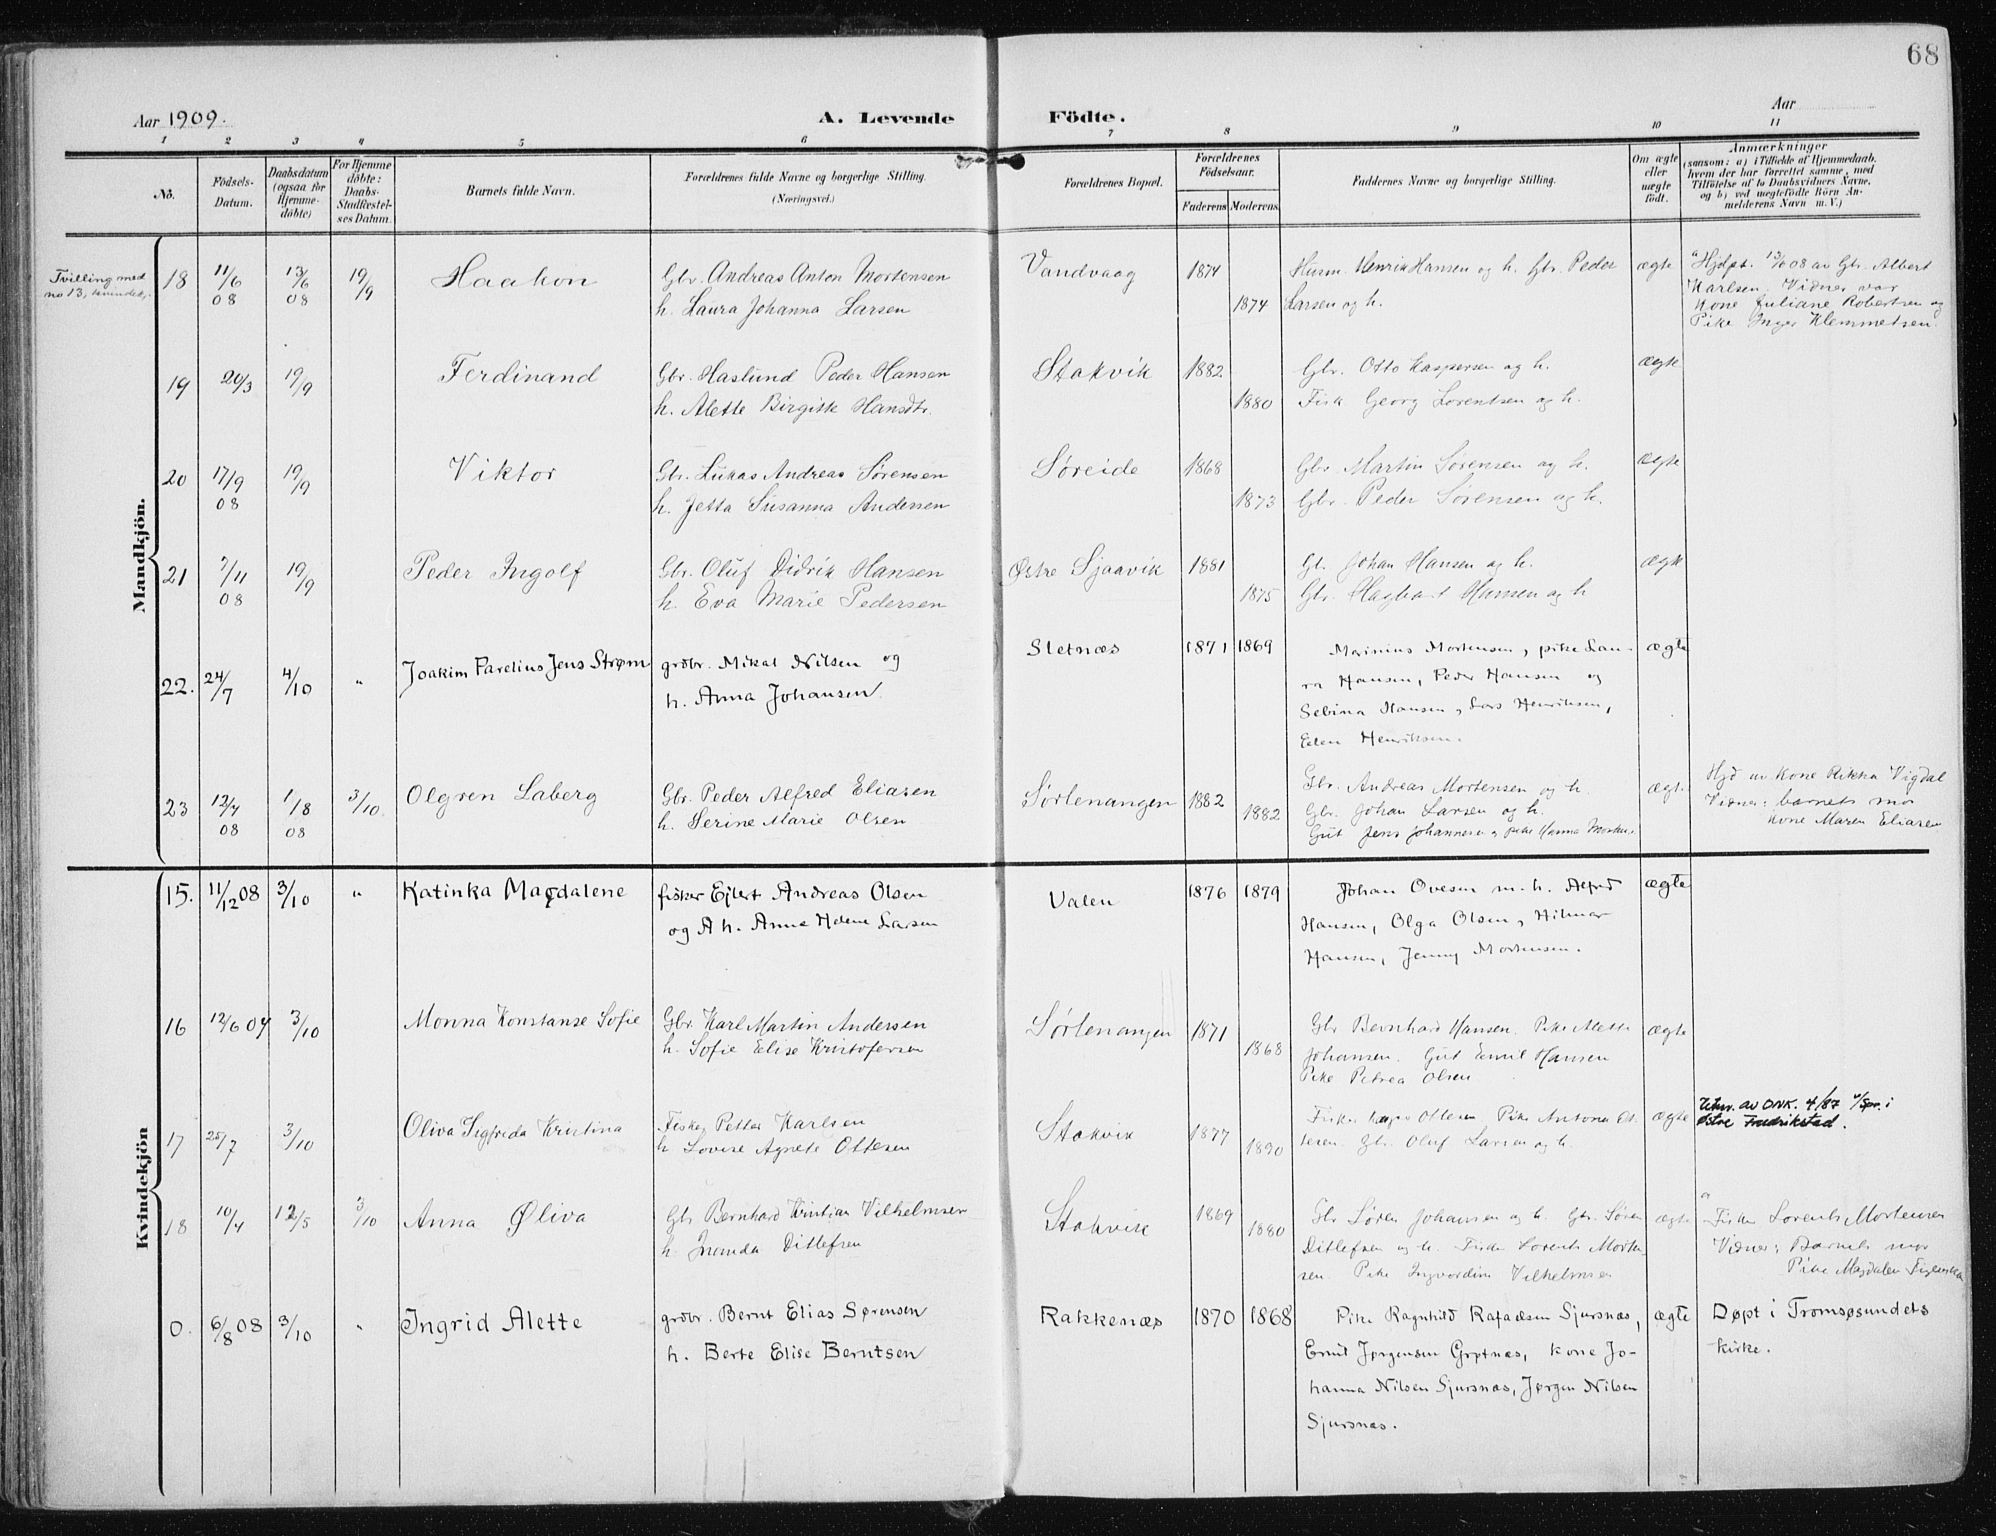 68
Aar 1909. A. Levende Födte. Aar
1 2 3 4 5 6 7 8 9 10 11
No.
Födsels-
Datum.
Daabsdatum
(ogsaa for
Hjemme-
döbte)
For Hjemme
döbte:
Daabs-
Stadfæstel-
ses Datum.
Barnets fulde Navn.
Forældrenes fulde Navne og borgerlige Stilling.
(Næringsvei.)
Forældrenes Bopæl.
Forældrenes
Födselsaar.
Faderens Moderens
Faddernes Navne og borgerlige Stilling.
Om ægte
eller
uægte
født.
Anmærkninger
(saasom: a) i Tilfælde af Hjemmedaab,
hvem der har forrettet samme, med
Tilföielse af to Daabsvidners Navne,
og b) ved uægtefödte Börn An-
melderens Navn m. V.)
Mandkjön.
Tvilling med
no 13, kvindekj.
18 11/6 08 13/6 08 19/9 Haakon
Gbr. Andreas Anton Mortensen
h. Laura Johanna Larsen
Vandvaag 1874 1874
Husm. Henrik Hansen og h. Gbr. Peder
Larsen og h.
ægte
a Hjdpt. 13/6 08 av Gbr. Albert
Karlsen. Vidner var
Kone Juliane Robertsen og
Pike Inger Klemmetsen.
19 20/3 19/9 Ferdinand
Gbr. Haslund Peder Hansen
h. Alette Birgitte Hansdtr.
Stakvik 1882 1880
Gbr. Otto Kaspersen og h.
Fisk Georg Lorentsen og h.
ægte
20 17/9 08 19/9 Viktor
Gbr. Lukas Andreas Sørensen
h. Jetta Susanna Andersen
Søreide 1868 1873
Gbr Martin Sørensen og h.
Gbr. Peder Sørensen og h.
ægte
21 7/11 08 19/9 Peder Ingolf
Gbr. Oluf Didrik Hansen
h. Eva Marie Pedersen
Østre Sjaavik 1881 1875
Gb. Johan Hansen og h.
Gbr. Hagbart Hansen og h
ægte
22. 24/7 4/10 " Joakim Parelius Jens Strøm
grdbr. Mikal Nilsen og
h. Anna Johansen
Sletnæs 1871 1869
Marinius Mortensen, pike Lau-
ra Hansen, Peder Hansen og
Sebina Hansen, Lars Henriksen,
Elen Henriksen.
ægte
23 12/7 08 1/8 08 3/10 Olgren Laberg
Gbr. Peder Alfred Eliasen
h. Serine Marie Olsen
Sørlenangen 1882 1882
Gbr. Andreas Mortensen og h.
Gbr. Johan Larsen og h.
Gut Jens Johannesen, pike Hanna Morten.
ægte
Hjd av Kone Rikka Vigdal
Vidner: barnets mor
Kone Maren Eliasen
Kvindekjön
15. 11/12 08 3/10 " Katinka Magdalene
fisker Ejlert Andreas Olsen
og A h. Anne Helene Larsen
Valen 1876 1879
Johan Ovesen m. h. Alfred
Hansen, Olga Olsen, Hilmar
Hansen, Jenny Mortensen.
ægte
16 12/6 07 3/10 Monna Konstanse Sofie
Gbr. Karl Martin Andersen
h. Sofie Elise Kristofersen
Sørlenangen 1871 1868
Gbr Bernhard Hansen. Pike Alette
Johansen. Gut Emil Hansen
Pike Petrea Olsen
ægte
17 25/7 3/10 Oliva Sigfrida Kristina
Fisker Petter Karlsen
h Lovise Agnete Ottesen
Stakvik 1877 1890
Fisker Ottesen Pike Antona Ot-
tesen. Gbr. Oluf Larsen og h.
ægte
av DNK. 4/87 v/Spr. i
Østre Fredrikstad.
18 10/4 12/5 3/10 Anna Øliva
Gbr Bernhard Kristian Vilhelmsen
h. Ditlefsen
Stakvik 1869 1880
Gbr Søren Johansen og h. Gbr. Søren
Ditlefsen og h. Fisker Lorents Morten-
sen. Pike Ingvardine Vilhelmsen
ægte
a Fisker Lorents Mortensen
Vidner: Barnets mor
Pike Magdalen
0. 6/8 08 3/10 " Ingrid Alette
grdbr. Bernt Elias Sørensen
h. Berte Elise Berntsen
Rakkenæs 1870 1868
Pike Ragnhild Rafaelsen Sjursnæs,
Emil Jørgensen Grøtnæs, kone Jo-
hanna Nilsen Sjursnæs, Jørgen Nilsen
Sjursnæs.
ægte
Døpt i Tromsøsundets
kirke.